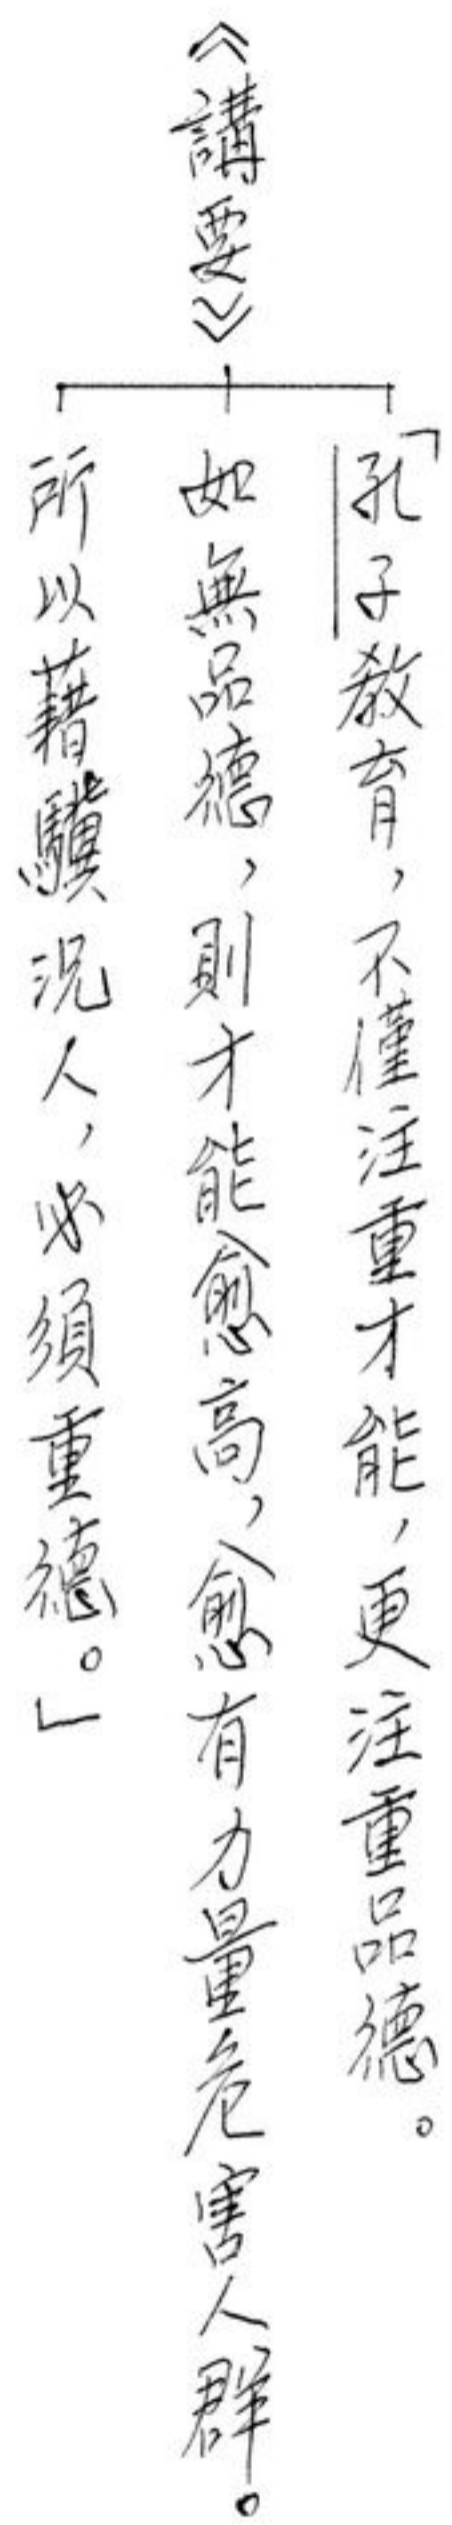 《講要》
「孔子教育，不僅注重才能，更注重品德。
如無品德，則才能愈高，愈有力量危害人群。
所以藉驥況人，必須重德。」